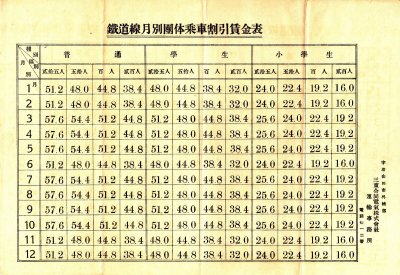 鐵道線月別團体乘車割引賃金表
種別 區別 月別
普通 學生 小學生
貳拾五人 五拾人 百人 貳百人 貳拾五人 五拾人 百人 貳百人 貳拾五人 五拾人 百人 貳百人
1月 51.2 48.0 44.8 38.4 48.0 44.8 38.4 32.0 24.0 22.4 19.2 16.0
2 51.2 48.0 44.8 38.4 48.0 44.8 38.4 32.0 24.0 22.4 19.2 16.0
3 57.6 54.4 51.2 48.0 51.2 48.0 44.8 38.4 25.6 24.0 22.4 19.2
4 57.6 54.4 51.2 48.0 51.2 48.0 44.8 38.4 25.6 24.0 22.4 19.2
5 57.6 54.4 51.2 48.0 51.2 48.0 44.8 38.4 25.6 24.0 22.4 19.2
6 51.2 48.0 44.8 38.4 48.0 44.8 38.4 32.0 24.0 22.4 19.2 16.0
7 57.6 54.4 51.2 48.0 51.2 48.0 44.8 38.4 25.6 24.0 22.4 19.2
8 57.6 54.4 51.2 48.0 51.2 48.0 44.8 38.4 25.6 24.0 22.4 19.2
9 57.6 54.4 51.2 48.0 51.2 48.0 44.8 38.4 25.6 24.0 22.4 19.2
10 57.6 54.4 51.2 48.0 51.2 48.0 44.8 38.4 25.6 24.0 22.4 19.2
11 51.2 48.0 44.8 38.4 48.0 44.8 38.4 32.0 24.0 22.4 19.2 16.0
12 51.2 48.0 44.8 38.4 48.0 44.8 38.4 32.0 24.0 22.4 19.2 16.0
宇治山田市
三重合同電氣株式会社
運輸事務所